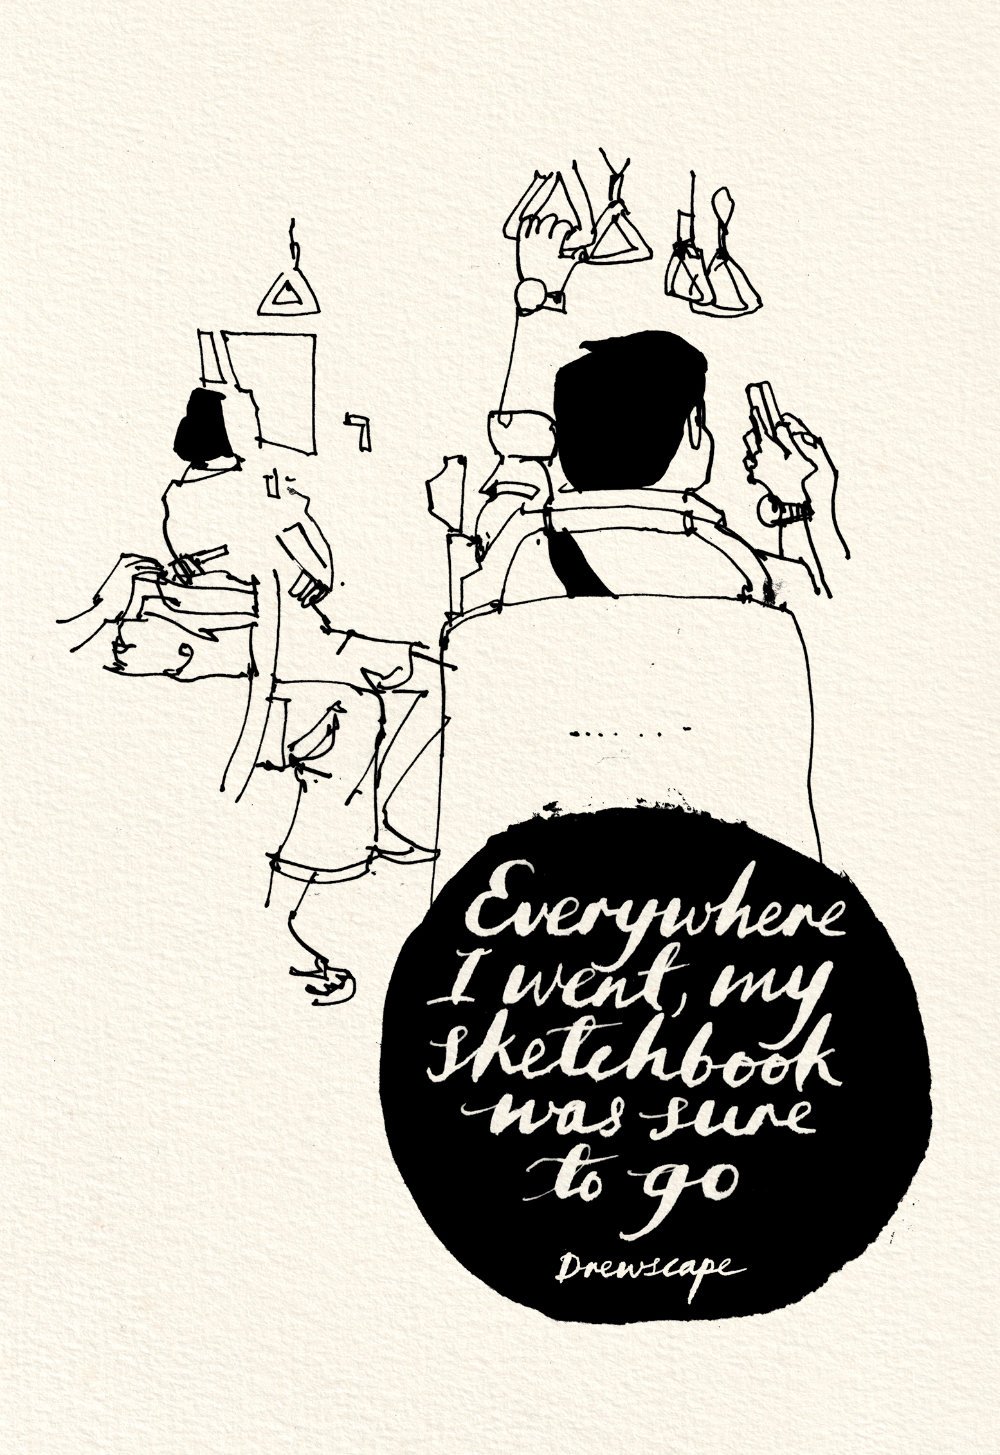 Everywhere
I went, my
sketchbook
was sure
to go
Drewscape